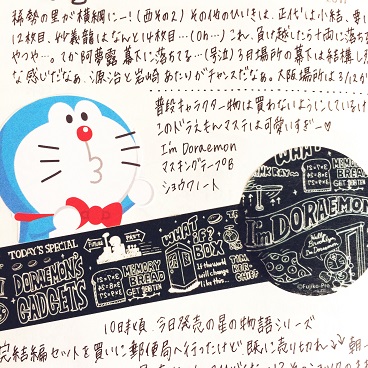 稀勢の里が横綱にー!(西その2) その他のひいきは、正代は小結、
12枚目、妙義龍はなんと14枚目…(Oh…) これ、負け越したら十両に落ち
やつやー。てか阿夢露 幕下に落ちてる…(号泣) 3月場所の幕下は結構し
な感じだなぁ、源治と岩崎あたりがチャンスだなぁ。大阪場所は3/12か
普段キャラクター物は買わないようにしている
このドラえもんマステは可愛いすぎー♡
I'm Doraemon
マスキングテープB
ショウワノート
TODAY'S SPECIAL
DORAEMON'S GADGETS
FUTURE
PAST
MEMORY BREAD
GET 100 TEN
WHAT IF? BOX
If the world will change like this...
TIME KER-CHIEF
WHAT
MEMORY BREAD
GET 100 TEN
I'm DORAEMON
Hello Everybody I'm Doraemon
©Fujiko-Pro
10日頃、今日発売の星の物語シリーズ
完結編セットを買いに郵便局へ行ったけど、既に売り切れ